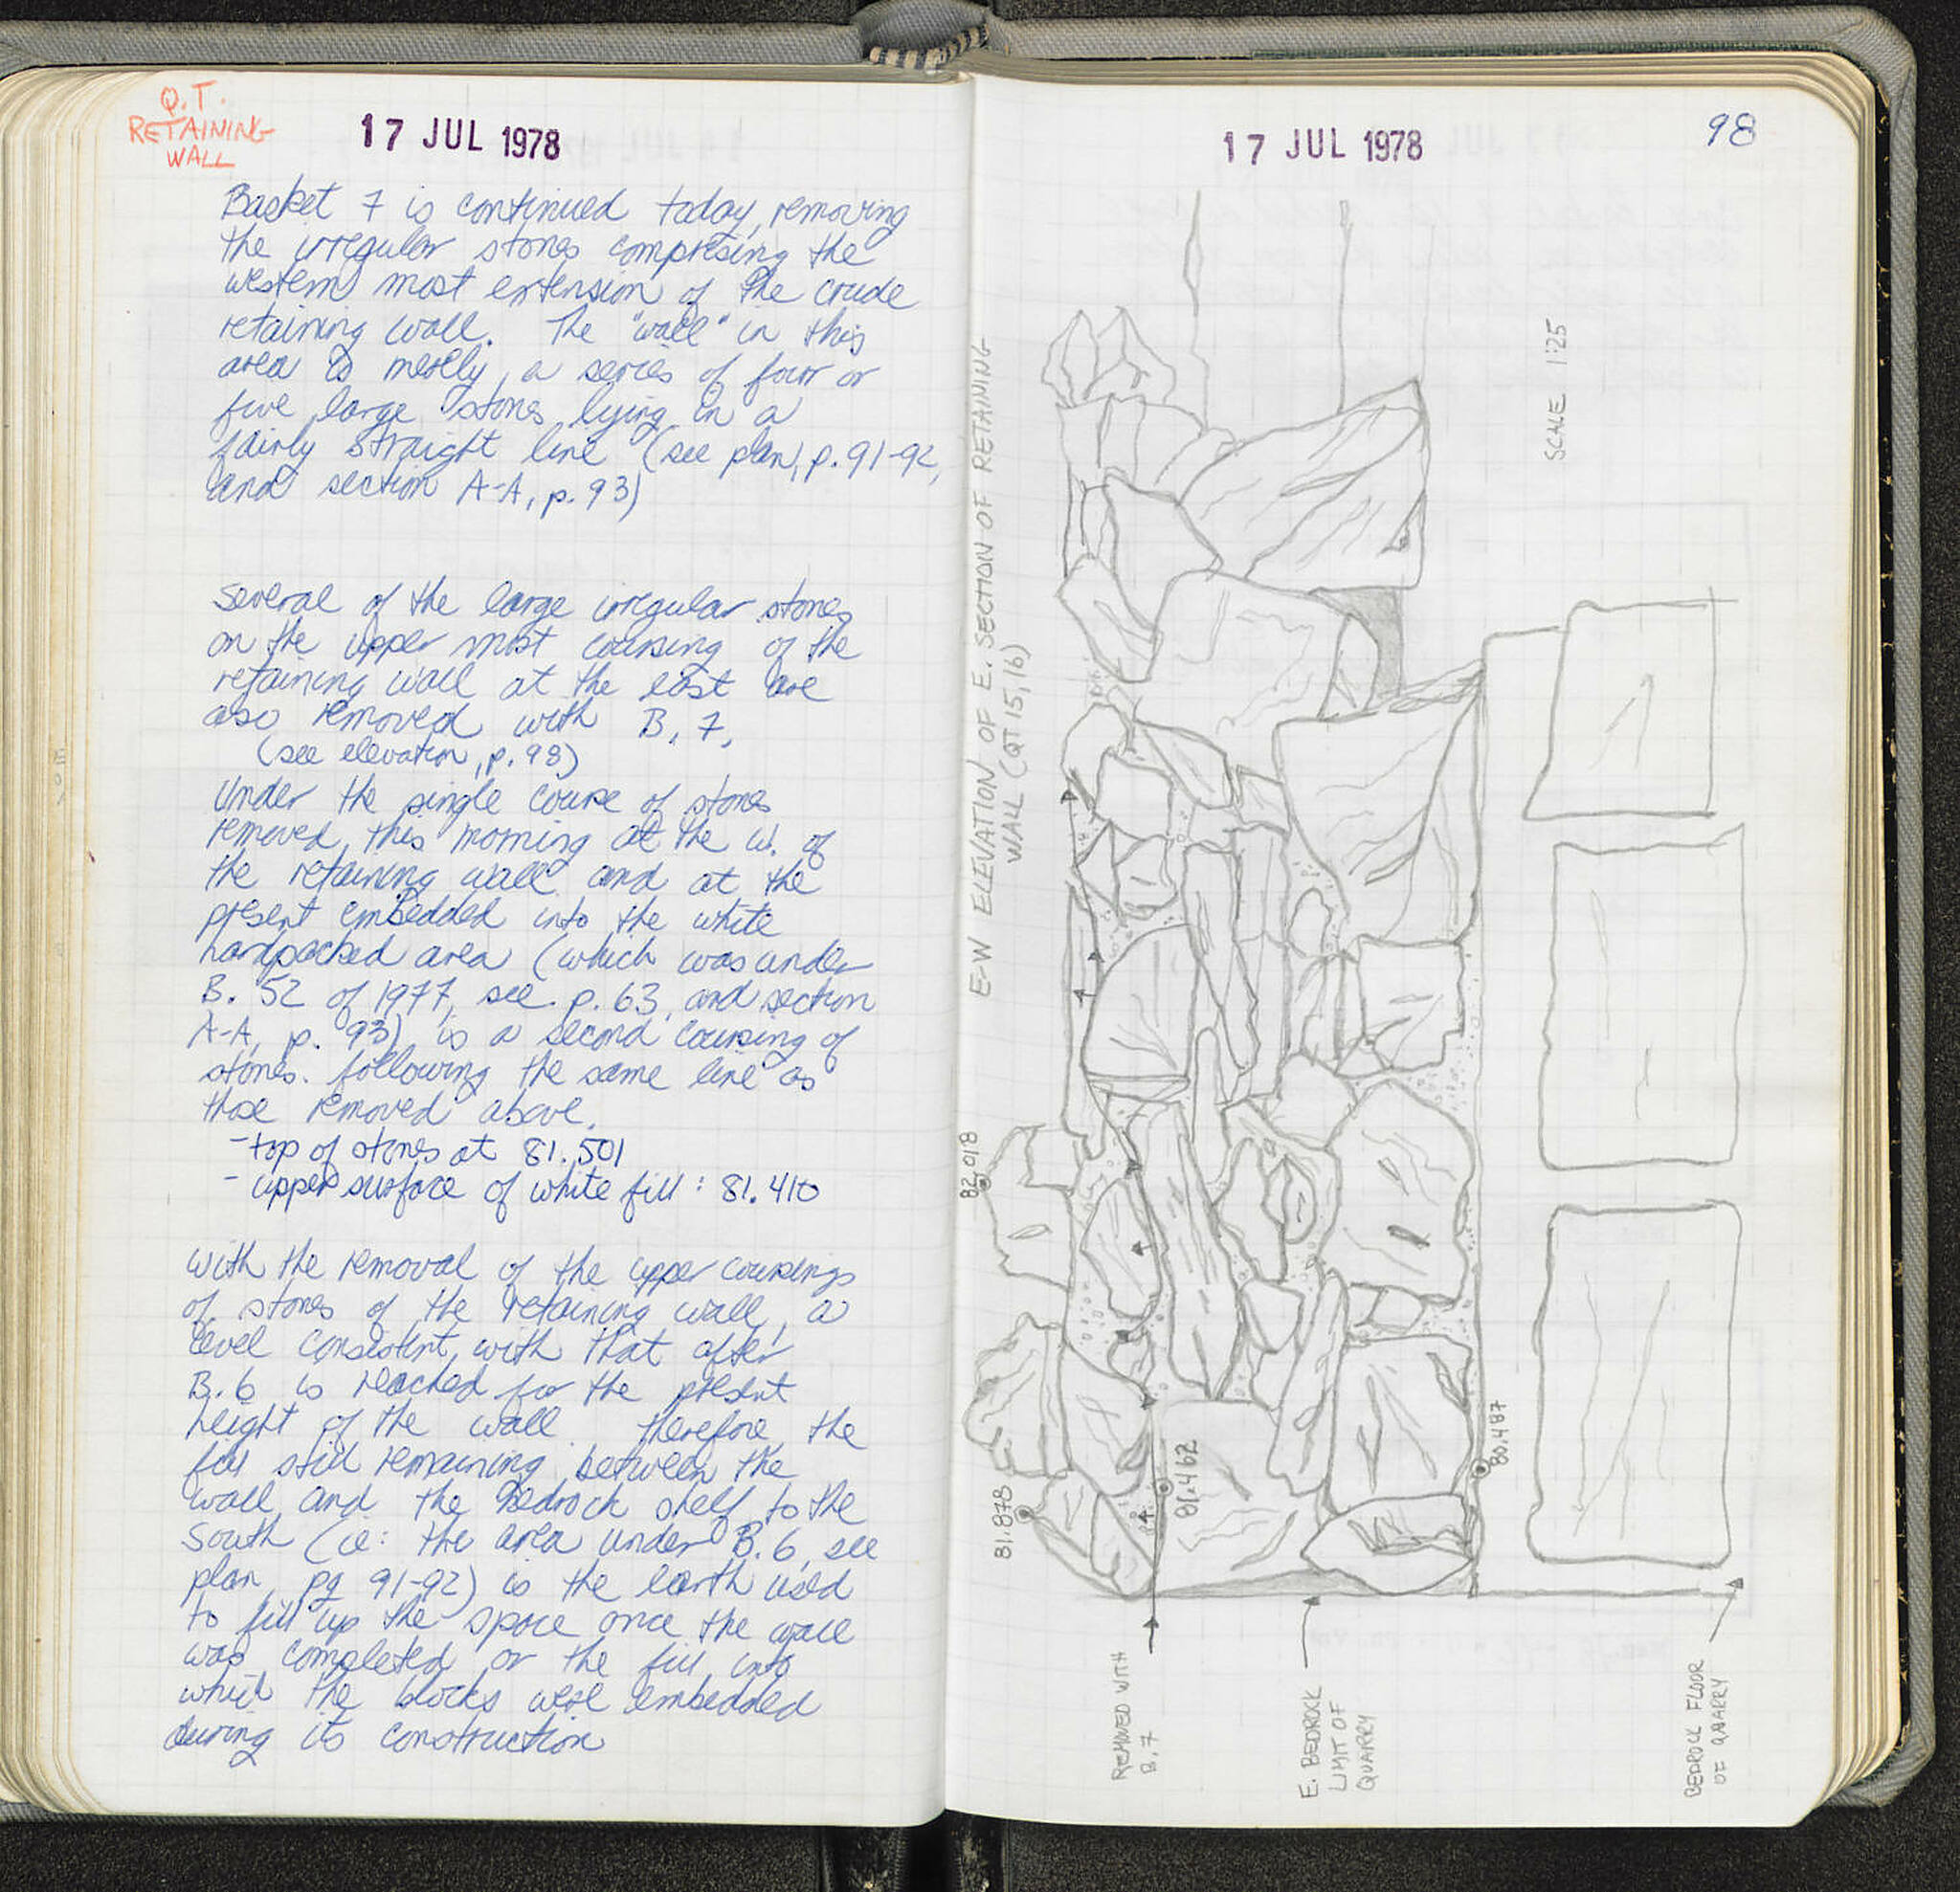 Q.T.
RETAINING
WALL
17 JUL 1978
Basket 7 is continued today, removing
the irregular stones compresing the
western most extension of the crude
retaining wall. The "wall" in this
area is merely a series of four or
five large stones lying in a
fairly straight line (see plan, p. 91-92,
and section A-A, p. 93)
Several of the large irregular stones
on the upper most coursing of the
retaining wall at the east are
also removed with B. 7.
(see elevation, p. 98)
Under the single course of stones
removed this morning at the w. of
the retaining wall and at the
present embedded into the white
hardpacked area (which was under
B. 52 of 1977, see p. 63, and section
A-A, p. 93) is a second coursing of
stones. following the same line as
those removed above.
- top of stones at 81.501
- upper surface of white fill : 81.410
With the removal of the upper coursings
of stones of the retaining wall, a
level consistent with that after
B.6 is reached for the present
height of the wall. therefore the
fill still remaining between the
wall and the bedrock shelf to the
south (ie: the area under B.6, see
plan, pg 91-92) is the earth used
to fill up the space once the wall
was completed or the fill into
which the blocks were embedded
during its construction
17 JUL 1978
98
E-W ELEVATION OF E. SECTION OF RETAINING
WALL (QT 15, 16)
SCALE 1:25
82.018
81.878
81.462
80.487
REMOVED WITH
B.7
E. BEDROCK
LIMIT OF
QUARRY
BEDROCK FLOOR
OF QUARRY